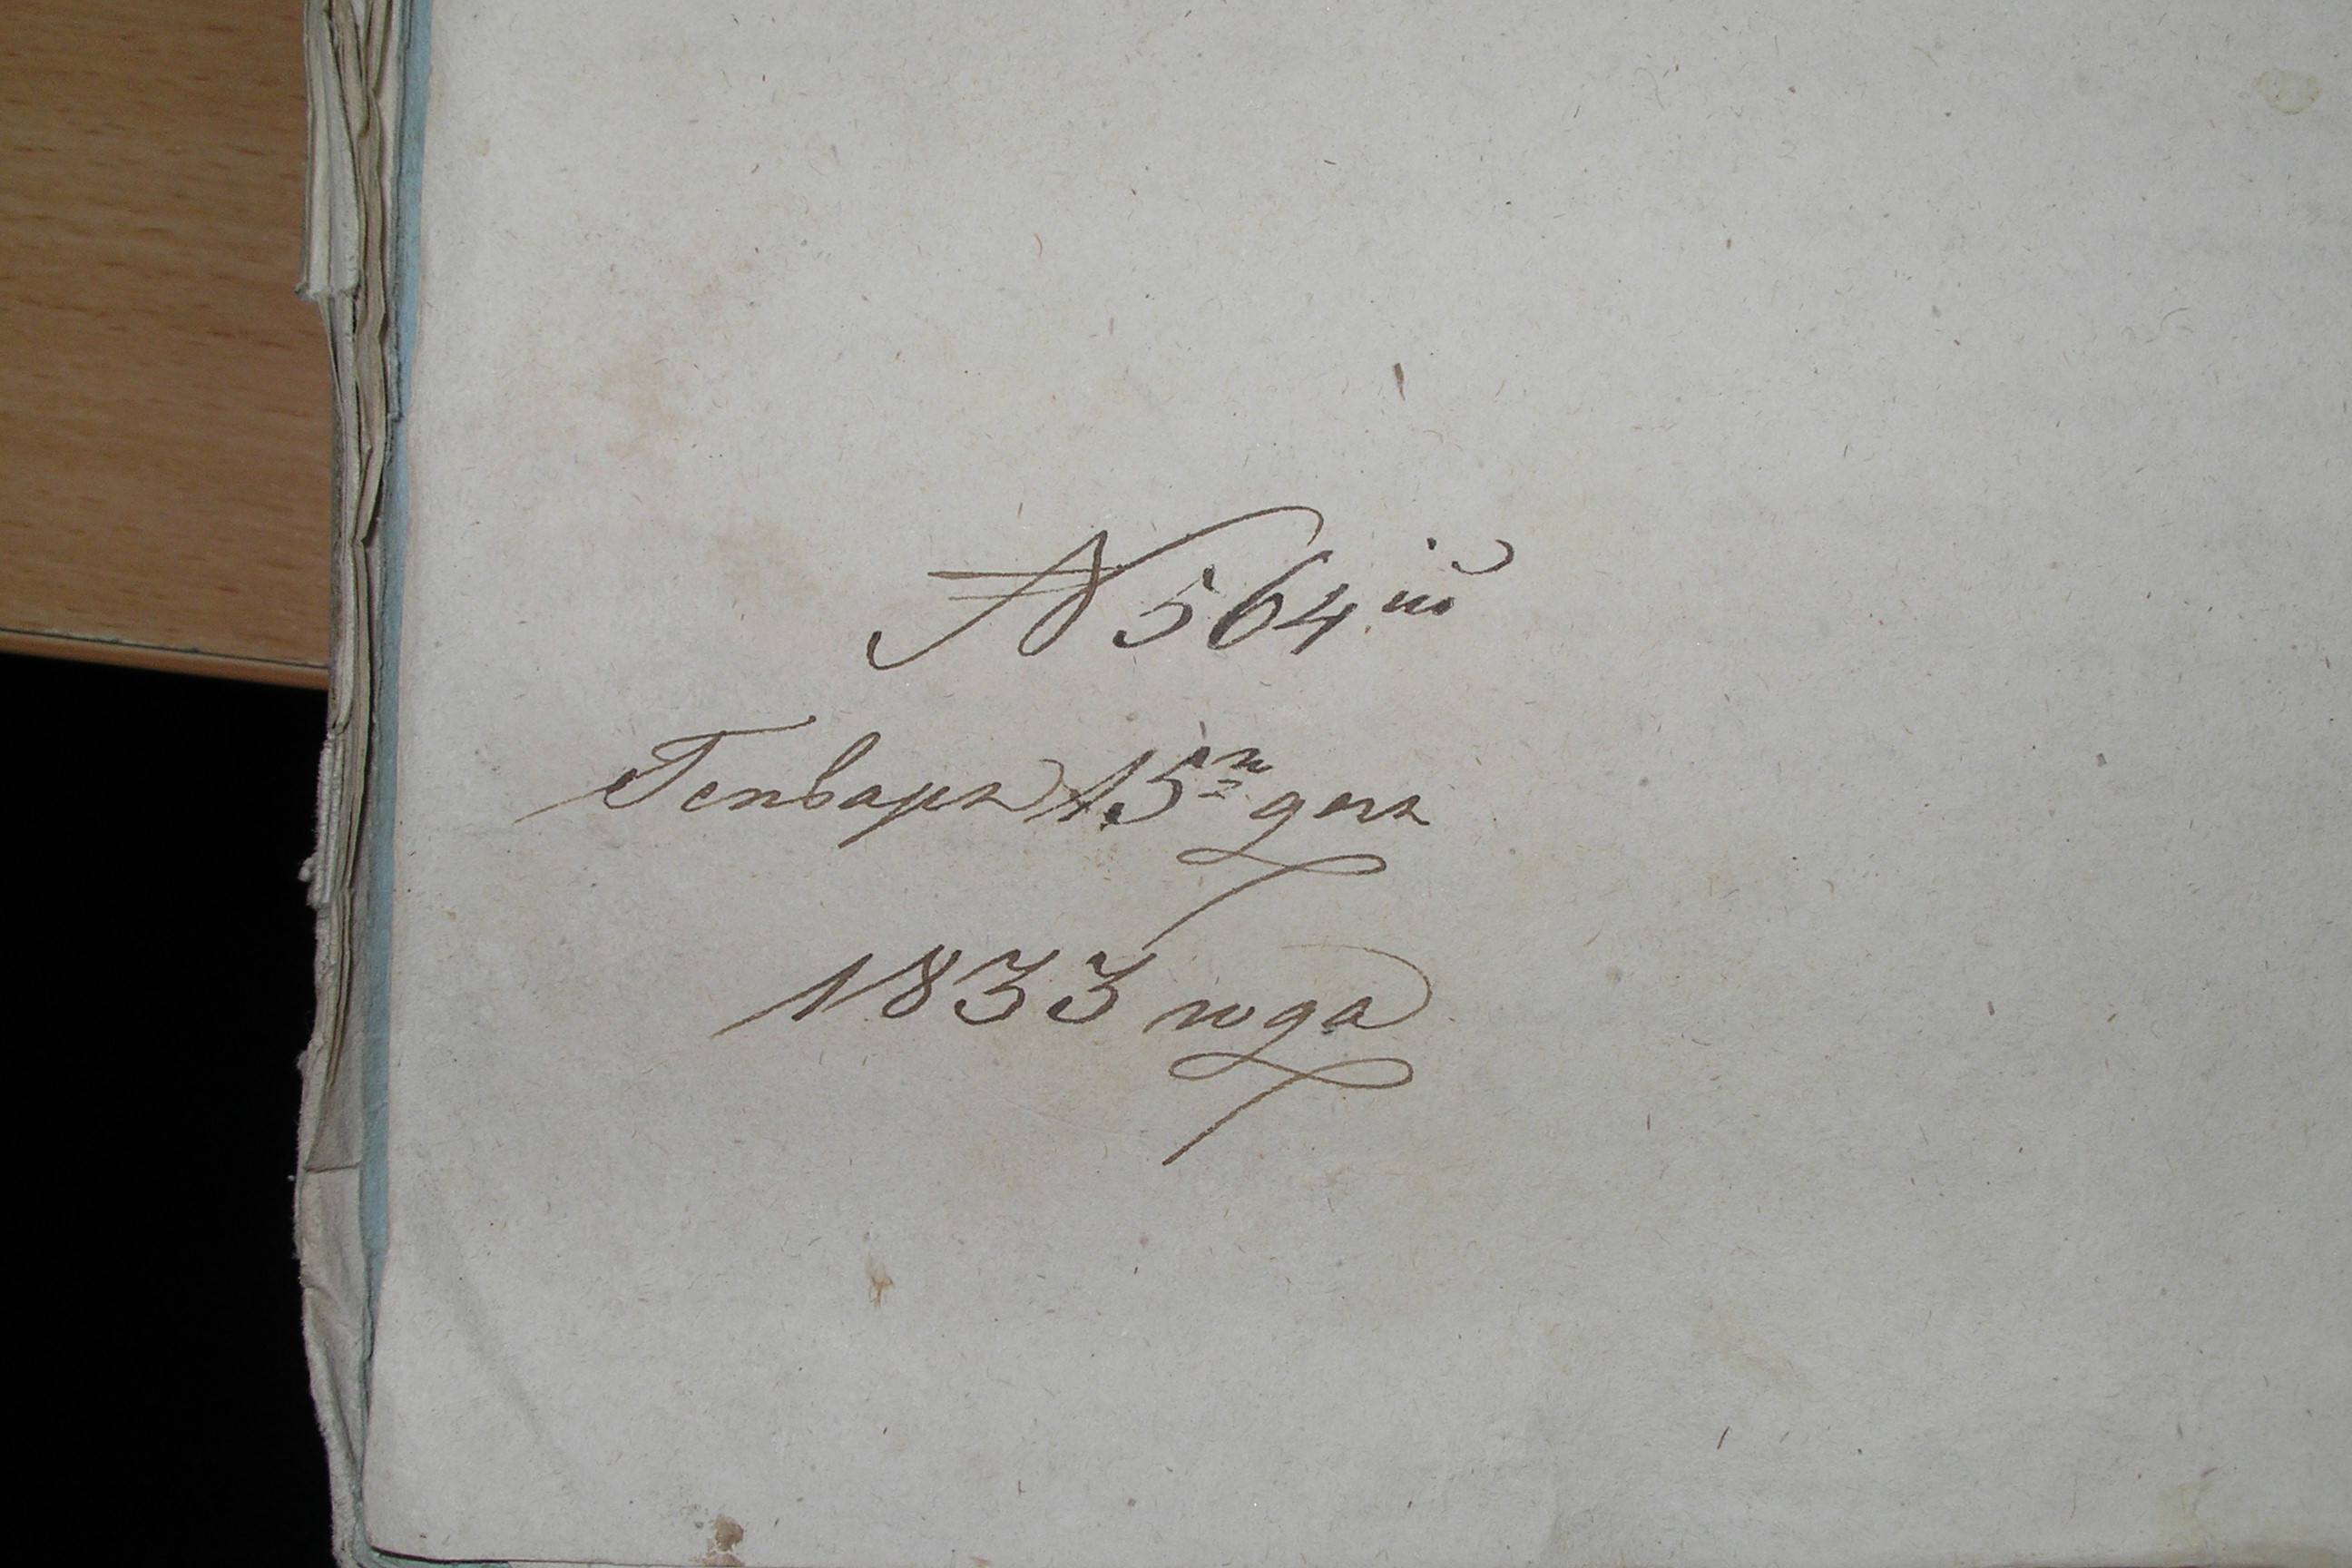 № 564й
Генваря 15го дня
1833 года